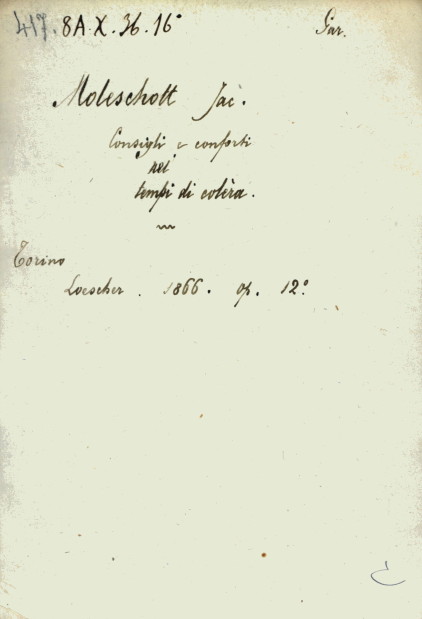 417. 8A.X.36.16°
Gar.
Moleschott Jac.
Consigli e conforti
nei
tempi di colèra.
Torino
Loescher. 1866. op. 12°.